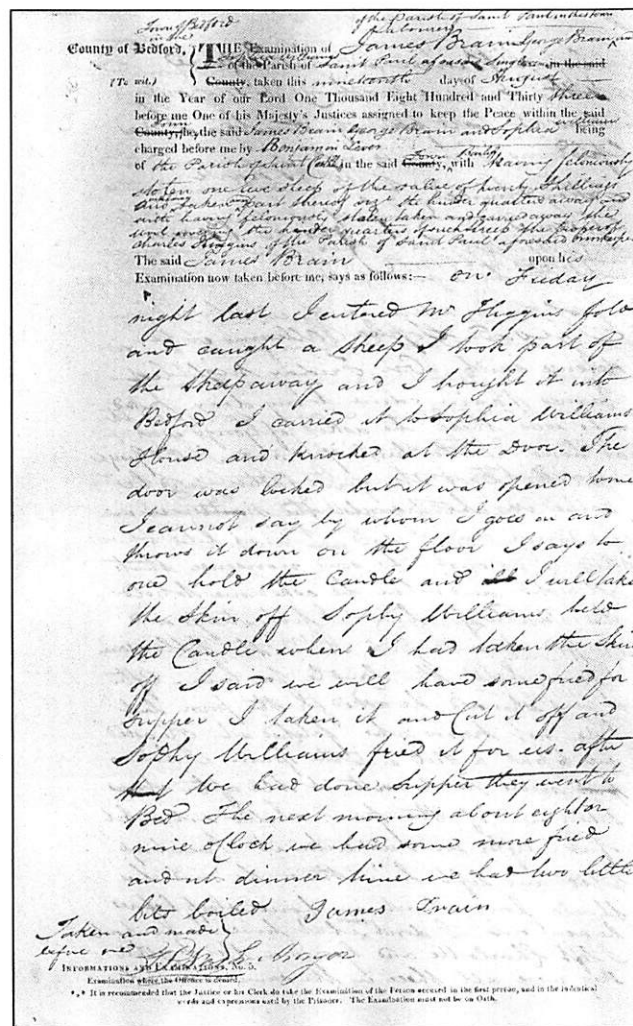 Town of Bedford
in the
of the Parish of Saint Paul in the town
Labourer
County of Bedford, THE Examination of James Brain George Brain
(To wit.) of the Parish of Saint Paul aforesaid in the said
County, taken this nineteenth day of August
in the Year of our Lord One Thousand Eight Hundred and Thirty three
before me One of his Majesty's Justices assigned to keep the Peace within the said
Town
County, the said James Brain George Brain and Sophia Williams being
charged before me by Benjamin
of the Parish of Saint in the said County, Town with having feloniously
stolen one ewe sheep of the value of twenty Shillings
and taken part thereof the hinder quarters away and
with having feloniously stolen taken and carried away the
the hinder quarters of such sheep the property of
Charles Higgins of the Parish of Saint Paul aforesaid
The said James Brain upon his
Examination now taken before me, says as follows:— On Friday
night last I entered Mr Higgins fold
and caught a sheep I took part of
the sheep away and I bought it into
Bedford I carried it to Sophia Williams
House and knocked at the Door. The
door was locked but it was opened to me
I cannot say by whom I goes in and
throws it down on the floor I says to
one hold the Candle and I will take
the Skin off Sophy Williams held
the Candle when I had taken the Skin
off I said we will have some fried for
supper I taken it and Cut it off and
Sophy Williams fried it for us. after
We had done Supper they went to
Bed The next morning about eight or
nine oClock we had some more fried
and at dinner time we had two little
bits boiled James Brain
Taken and made
before me
Mayor
INFORMATIONS AND EXAMINATIONS, No. 5.
Examination where the Offence is denied.
*** It is recommended that the Justice or his Clerk do take the Examination of the Person accused in the first person, and in the identical
words and expressions used by the Prisoner. The Examination must not be on Oath.